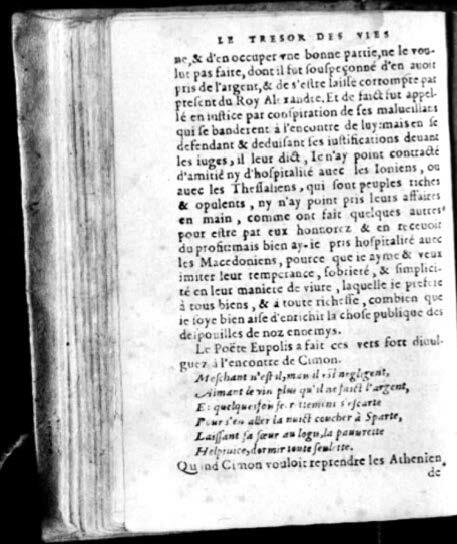 LE TRESOR DES VIES
ne, & d'en occuper vne bonne partie, ne le vou-
lut pas faire, dont il fut souspeçonné d'en auoir
pris de l'argent, & de s'estre laissé corrompre par
present du Roy Alexandre. Et de faict fut appel-
lé en iustice par conspiration de ses malueillans
qui se banderent à l'encontre de luy: mais en se
defendant & deduisant ses iustifications deuant
les iuges, il leur dict, Ie n'ay point contracté
d'amitié ny d'hospitalité auec les Ioniens, ou
auec les Thessaliens, qui sont peuples riches
& opulents, ny n'ay point pris leurs affaires
en main, comme ont fait quelques autres
pour estre par eux honorez & en receuoir
du profit: mais bien ay-ie pris hospitalité auec
les Macedoniens, pource que ie ayme & veux
imiter leur temperance, sobrieté, & simplici-
té en leur maniere de viure, laquelle ie prefere
à tous biens, & à toute richesse, combien que
ie soye bien aise d'enrichir la chose publique des
despouilles de noz ennemys.
Le Poëte Eupolis a fait ces vers fort diuul-
guez à l'encontre de Cimon.
Meschant n'est il, mau il est negligent,
Aimant le vin plus qu'il ne faict l'argent,
Et quelquesfois secrettement s'escarte
Pour s'en aller la nuict coucher à Sparte,
Laissant sa sœur au logis, la pauurette
Helpinice, dormir toute seulette.
Quand Cimon vouloit reprendre les Athenien
de